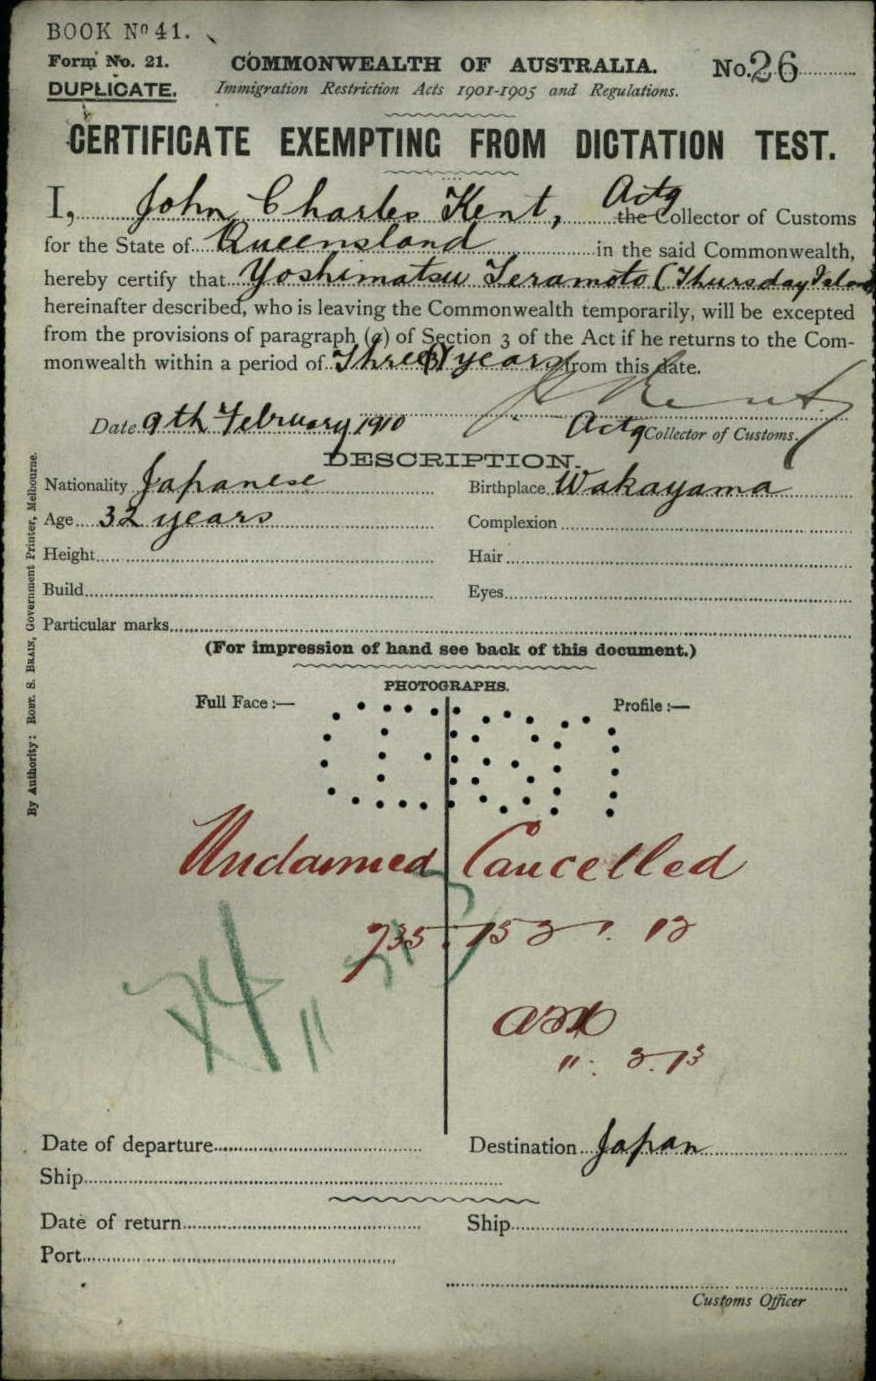 BOOK Nº 41.
Form No. 21.
COMMONWEALTH OF AUSTRALIA.
No. 26
DUPLICATE.
Immigration Restriction Acts 1901-1905 and Regulations.
CERTIFICATE EXEMPTING FROM DICTATION TEST.
I, John Charles Kent, Actg the Collector of Customs
for the State of Queensland in the said Commonwealth,
hereby certify that Yoshimatsu Teramoto (Thursday Island
hereinafter described, who is leaving the Commonwealth temporarily, will be excepted
from the provisions of paragraph (a) of Section 3 of the Act if he returns to the Com-
monwealth within a period of Three (3) years from this date.
J. Kent
Date 9th February 1910 Actg Collector of Customs.
DESCRIPTION.
Nationality Japanese Birthplace Wakayama
Age 32 years Complexion
Height Hair
Build Eyes
Particular marks
(For impression of hand see back of this document.)
PHOTOGRAPHS.
Full Face :— Profile :—
Unclaimed Cancelled
11. 3. 13
Date of departure Destination Japan
Ship
Date of return Ship
Port
Customs Officer
By Authority: ROBT. S. BRAIN, Government Printer, Melbourne.